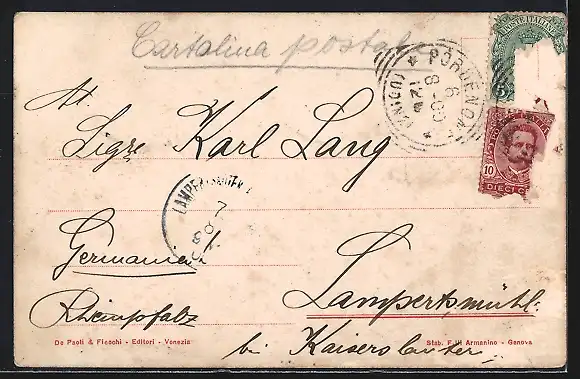 Cartolina postale
POSTE ITALIANE
5
PORDENONE
6
8-00
12
(UDINE)
10
DIECI C
At.
Sigre Karl Lang
LAMPERTSMÜHLE
7
Germania
Lampertsmühl.
Rheinpfalz
bei Kaiserslautern
De Paoli & Fiecchi - Editori - Venezia
Stab. F.lli Armanino - Genova